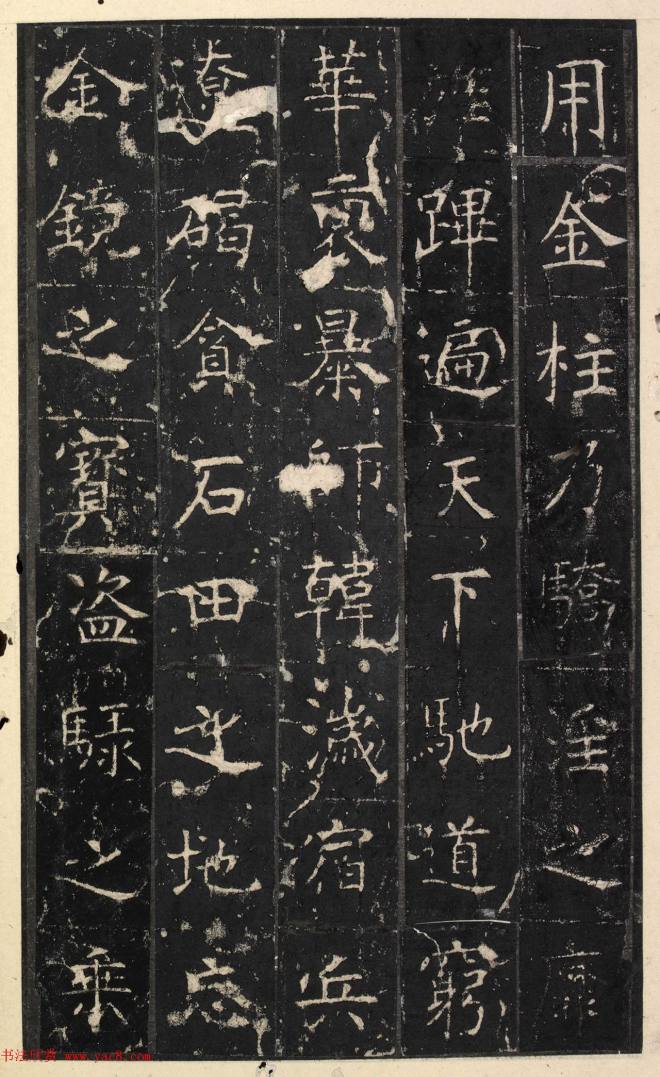 用金柱乃驕淫之靡
蹕遍天下馳道窮
華裔暴師韓濊宿兵
遼碣貪石田之地忘
金鏡之寶盗騄之乗
书法欣赏 www.yac8.com